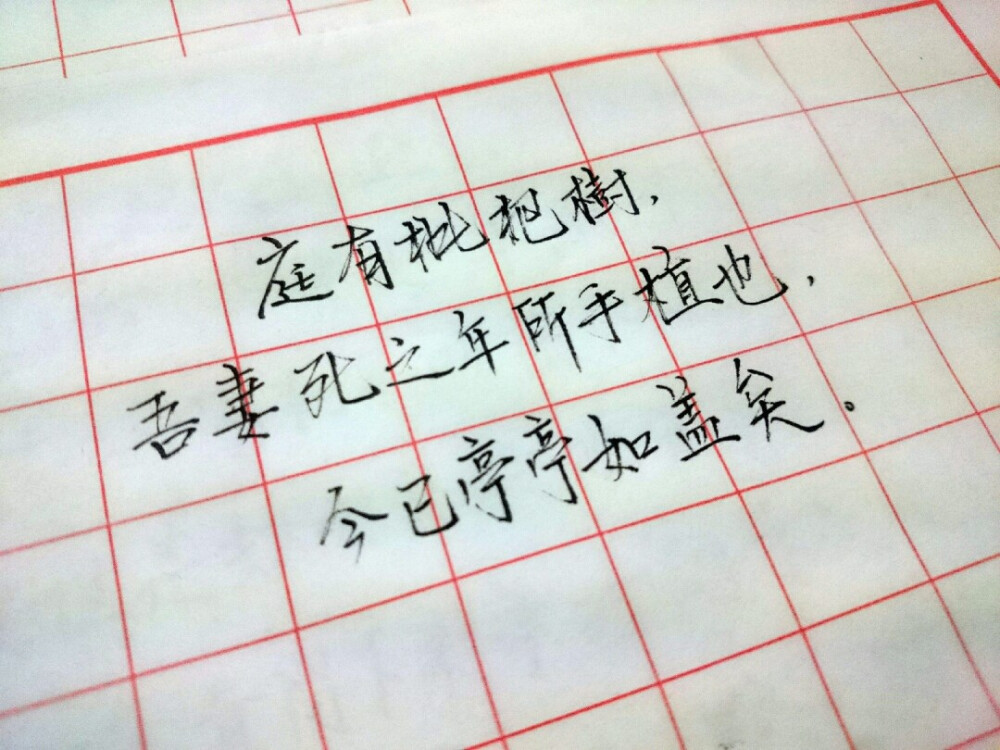 庭有枇杷樹，
吾妻死之年所手植也，
今已亭亭如盖矣。